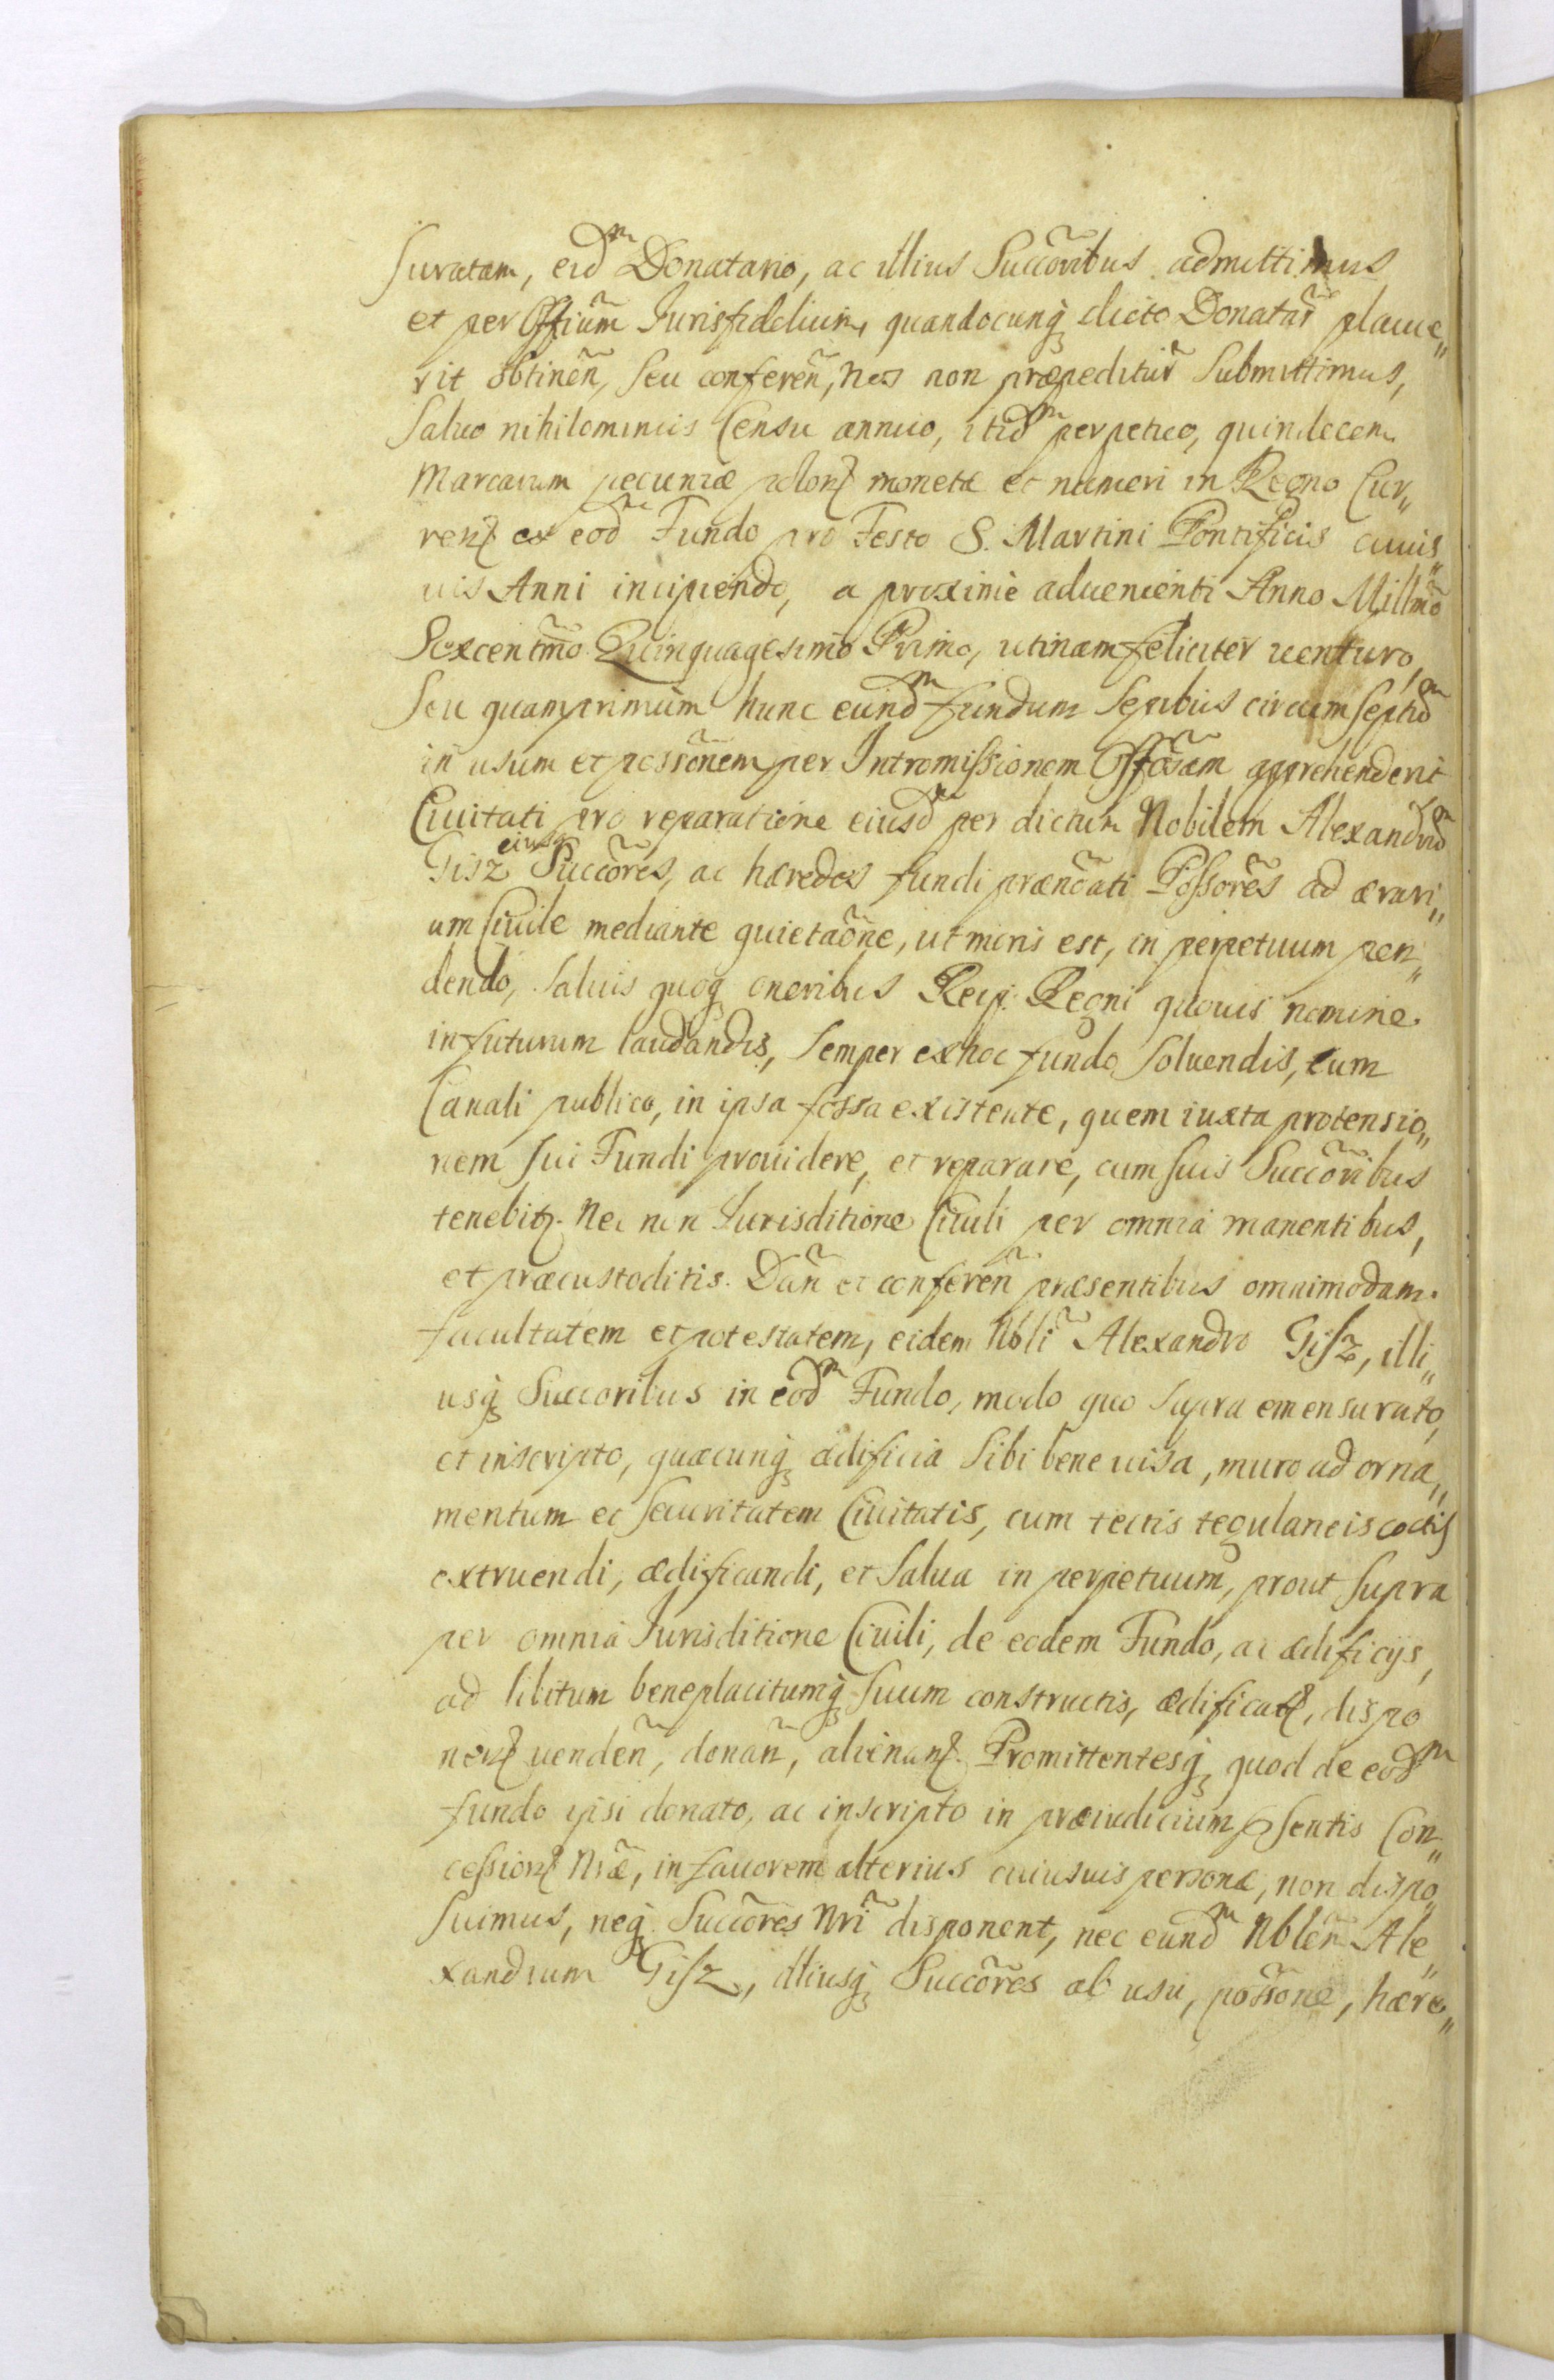 suratam, eid͂m Donatario, ac illius Succõribus admittimus
et per Offiũm Jurisfidelium, quandocunq̃ dicto Donatar̃ placue„
rit obtineñ, seu confereñ, nos non præpeditur̃ submittimus,
Saluo nihilominus Censu annuo, itid͂m perpetuo, quindecem
Marcarum pecuniæ monetæ et numeri in Regno Cur„
ren ex eod͂m Fundo pro Festo S. Martini Pontificis cuius„
uis Anni incipiendo, a proxime aduenienti Anno Millm̃o
Sexcentm̃o Quinquagesimo Primo, utinam feliciter uenturo,
seu quamprimum hunc eund͂m fundum sepibus circumseptid͂m
in usum et possõnem per Intromissionem Offõsam apprehenderit
Ciuitati pro reparatione eiusd͂m per dictum Nobilem Alexandrũm
Gisz eiusq̃ Succõres, ac hæredes fundi prænõati Possõres ad ærari„
um Ciuile mediante quietaõne, ut moris est, in perpetuum pen„
dendo, saluis quoq̃ oneribus Reip. Regni quouis nomine
in futurum laudandis, semper ex hoc fundo soluendis, cum
Canali publico, in ipsa fossa existente, quem iuxta protensio„
nem sui Fundi prouidere, et reparare, cum suis Succõribus
tenebit. Nec non Jurisditione Ciuili per omnia manentibus,
et præcustoditis. Dañ et confereñ præsentibus omnimodam
facultatem et potestatem, eidem Nbli͂ Alexandro Gisz, illi„
usq̃ Succoribus in eod͂m Fundo, modo quo supra emensurato,
et inscripto, quæcunq̃ ædificia sibi bene uisa, muro ad orna„
mentum et securitatem Ciuitatis, cum tectis tegulaneis coctis
extruendi, ædificandi, et salua in perpetuum, prout supra
per omnia Jurisditione Ciuili, de eodem Fundo, ac ædificijs,
ad libitum beneplacitumq̃ suum constructis, ædificat, dispo
nen uendeñ, donañ, alienan. Promittentesq̃ quod de eod͂m
fundo ipsi donato, ac inscripto in præiudicium p̃sentis Con„
cession Nr̃æ, in fauorem alterius cuiusuis personæ, non dispo„
suimus, neq̃ Succõres Nri͂ disponent, nec eund͂m Nblem̃ Ale„
xandrum Gisz, illiusq̃ Succõres ab usu, possõne, hære„